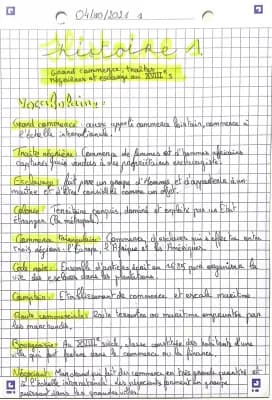 04/10/2021 1
Histoire 1
Grand commerce, traites
négrières et esclavage au XVIIIe s
Vocabulaire:
Grand commerce: aussi appelé commerce lointain, commerce à
l'échelle internationale.
Traite négrière: Commerce de femmes et d'hommes africains
capturés puis vendus à des propriétaires esclavagistes.
Esclavage: fait pour un groupe d'Hommes, d'appartenir à un
maître et d'être considérés comme un objet.
Colonie: Territoire conquis, dominé et exploité par un État
étranger (la métropole).
Commerce triangulaire: Commerce d'esclaves qui s'effectue entre
trois régions: l'Europe, l'Afrique et les Amériques.
Code noir: Ensemble d'articles écrit en 1685 pour organiser la
vie des esclaves dans les plantations.
Comptoir: Établissement de commerce et escale maritime
Route commerciale: Route terrestre ou maritime empruntée par
les marchands.
Bourgeoisie: Au XVIIIe siècle, classe constituée des habitants d'une
ville qui font fortune dans le commerce ou la finance.
Négociant: Marchand qui fait du commerce en très grande quantité et
à l'échelle internationale. les négociants forment un groupe
puissant dans les grandes villes.